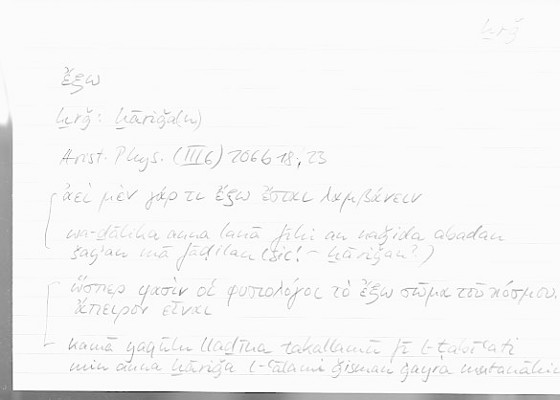 ḫrǧ
ἔξω
ḫrǧ: ḫāriǧa(n)
Arist. Phys. (III 6) 206b 18; 23
ἀεὶ μὲν γάρ τι ἔξω ἔσται λαμβάνειν
wa-ḏālika anna lanā fīhi an naǧida abadan
šayʾan mā fāḍilan (sic! – ḫāriǧan?)
ὥσπερ φασὶν οἱ φυσιολόγοι τὸ ἔξω σῶμα τοῦ κόσμου
ἄπειρον εἶναι
kamā yaqūlu llaḏīna takallamū fī ṭ-ṭabīʿati
min anna ḫāriǧa l-ʿālami ǧisman ġayra mutanāhin